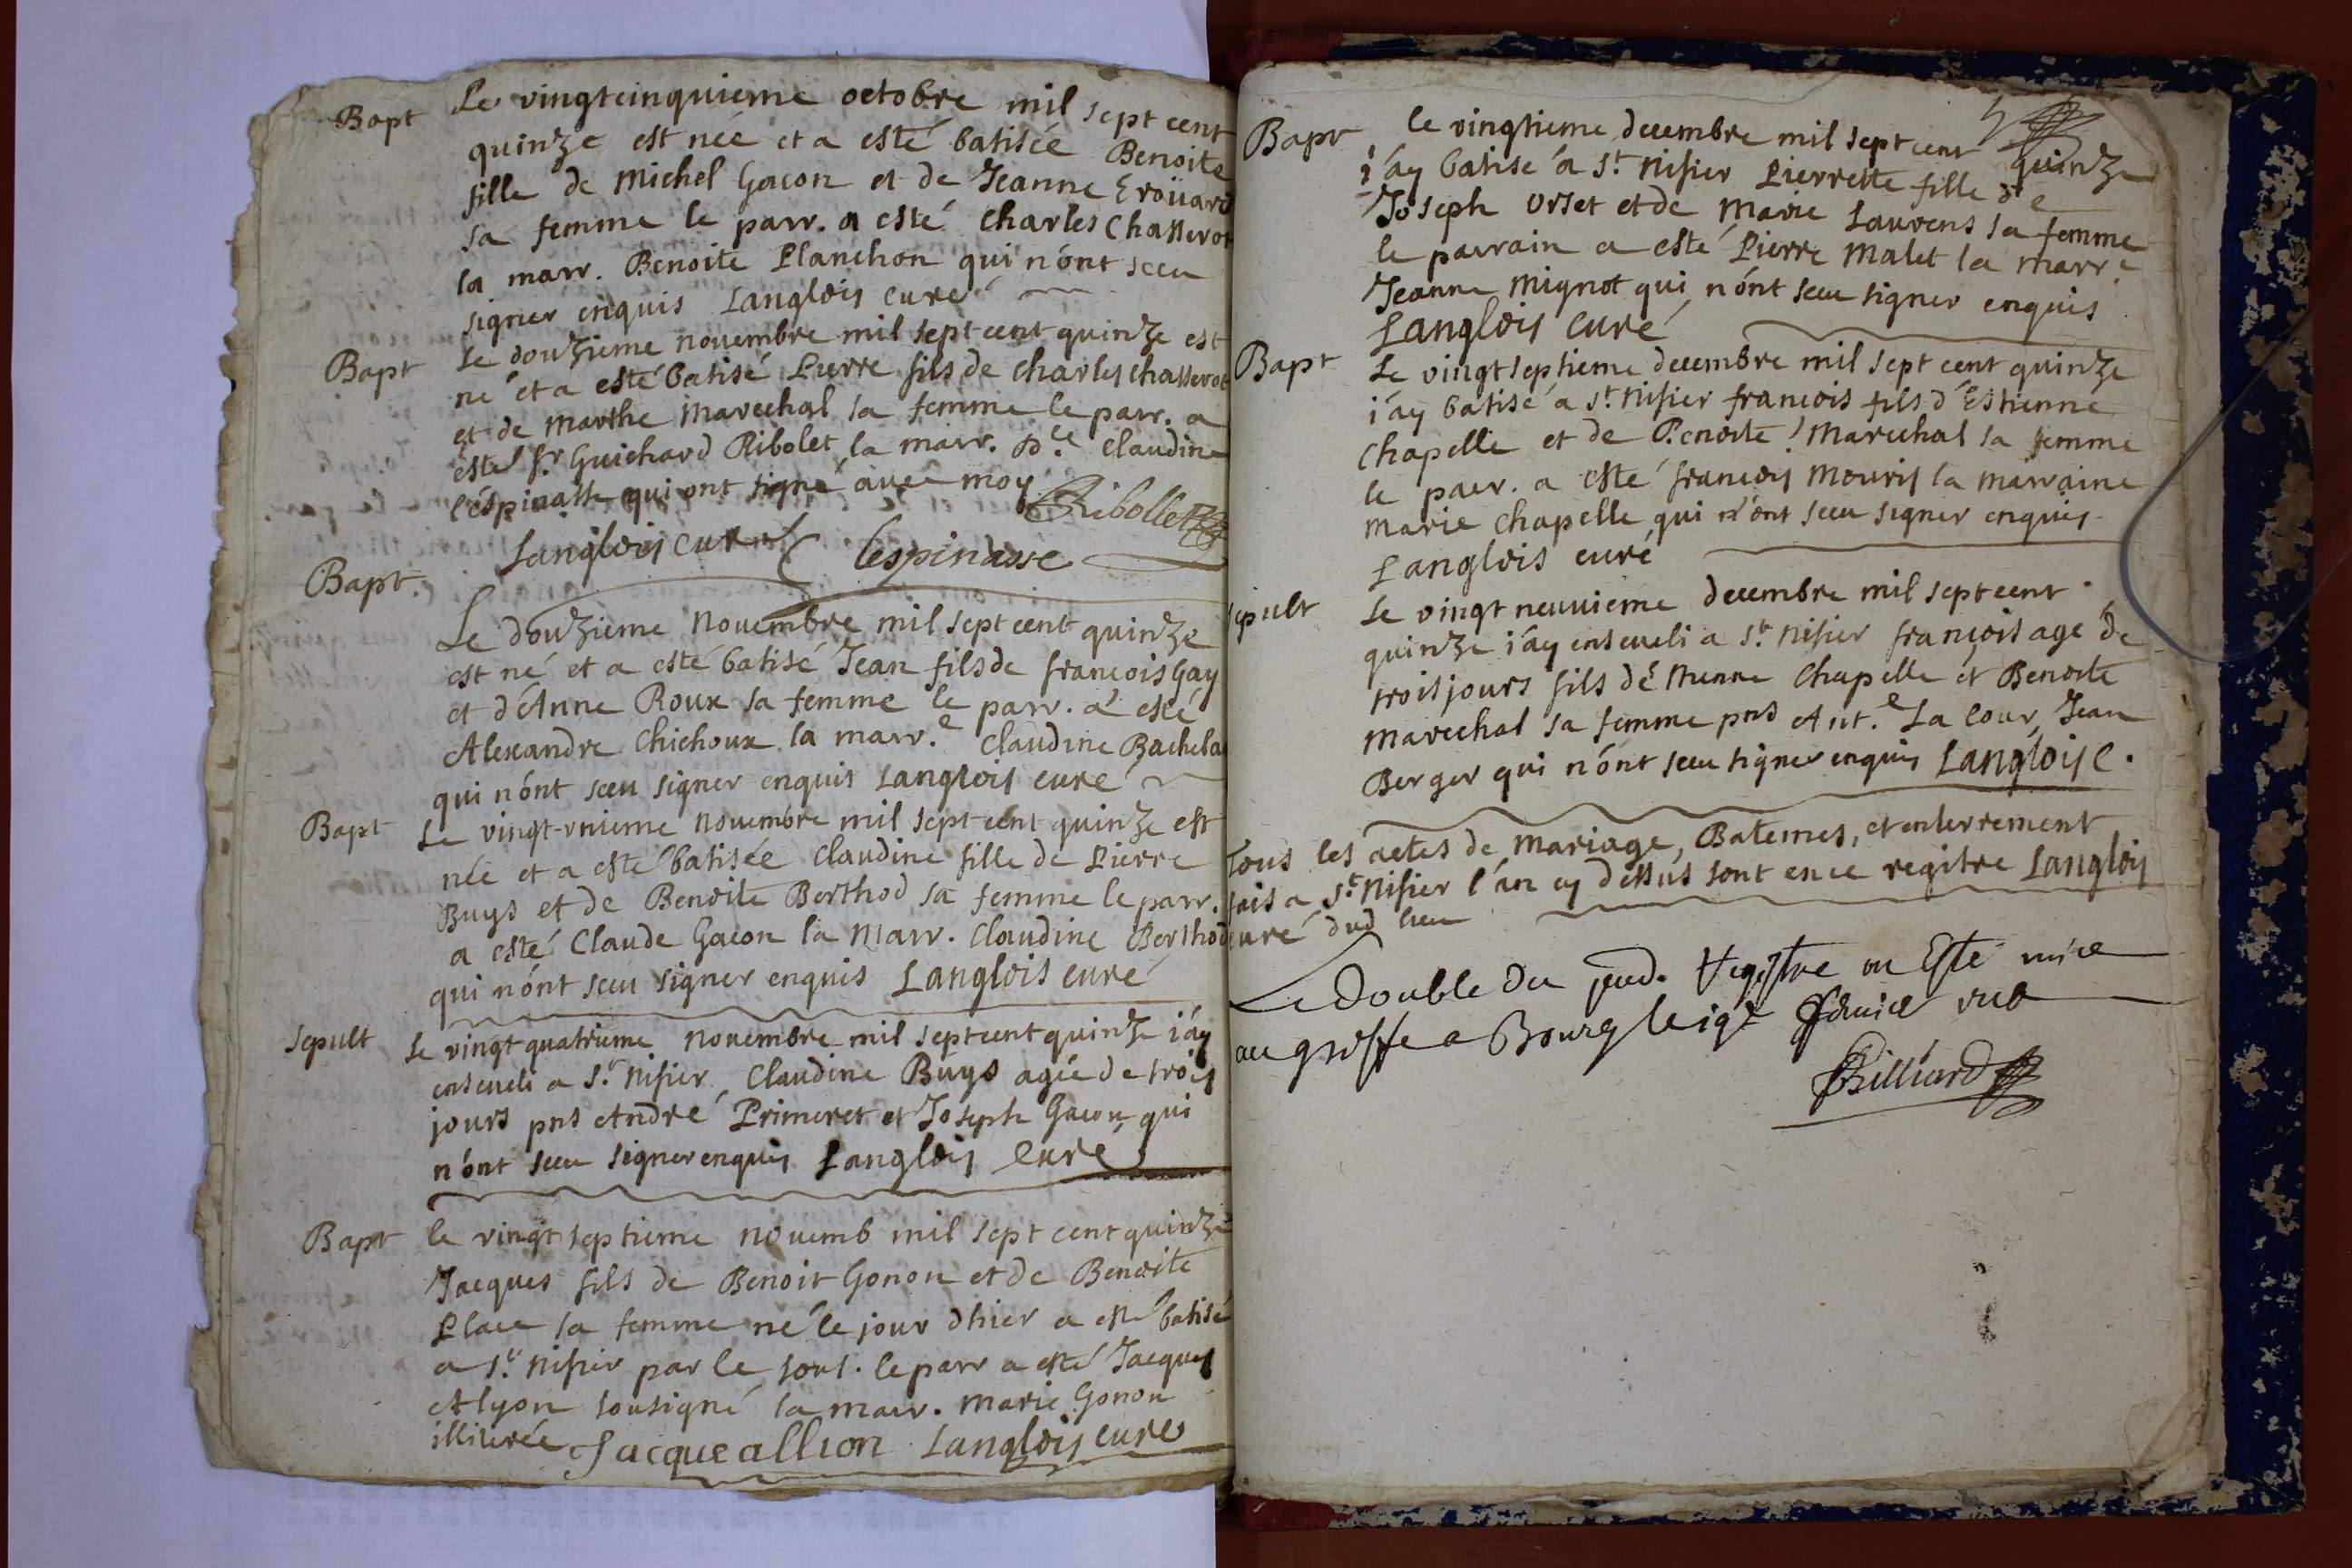 Bapt Le vingtcinquieme octobre mil sept cent
quinze est née et a esté batisée Benoite
fille de Michel Gacon et de Jeanne Eroüard
sa femme le parr. a esté Charles Chasserot
la marr. Benoite Planchon qui n'ont sceu
signer enquis Langlois Curé
Bapt Le douzieme novembre mil sept cent quinze est
né et a esté batisé Pierre fils de Charles Chasserot
et de Marthe Marechal sa femme le parr. a
esté Sr Guichard Ribolet la marr. Dlle Claudine
l'éspinasse qui ont signé avec moy
Ribollet
Langlois curé Lespinasse
Bapt.
Le douzieme Novembre mil sept cent quinze
est né et a esté batisé Jean fils de francois Gay
et d'Anne Roux sa femme le parr. a esté
Alexandre Chichoux la marr.e Claudine Bachela
qui n'ont sceu signer enquis Langlois curé
Bapt Le vingt-unieme Novembre mil sept cent quinze est
née et a esté batisée Claudine fille de Pierre
Buys et de Benoite Berthod sa femme le parr.
a esté Claude Gacon la Marr. Claudine Berthod
qui n'ont sceu signer enquis Langlois curé
Sepult Le vingt quatrieme Novembre mil sept cent quinze i'ay
enseveli a St. Nisier Claudine Buys agée de trois
jours pns André Primeret et Joseph Gacon qui
n'ont sceu signer enquis Langlois Curé
Bapt le vingt septieme novemb mil sept cent quinze
Jacques fils de Benoit Gonon et de Benoite
Place sa femme né le jour d'hier a esté batisé
a St. Nisier par le sous. le parr a esté Jacques
Alyon sousigné la marr. Marie Gonon
illiterée Jacque allion Langlois curé
Bapt le vingtieme decembre mil sept cent quinze
i'ay batisé a St. Nisier Pierrette fille de
Joseph Orset et de Marie Laurens sa femme
le parrain a esté Pierre Malet la marr.e
Jeanne Mignot qui n'ont sceu signer enquis
Langlois Curé
Bapt Le vingt septieme decembre mil sept cent quinze
i'ay batisé a St. Nisier francois fils d'Estienne
Chapelle et de Benoite Marechal sa femme
le parr. a esté francois Mouris la marraine
Marie Chapelle qui n'ont sceu signer enquis
Langlois curé
sepult Le vingt neuvieme decembre mil sept cent
quinze i'ay enseveli a St. Nisier françois agé de
trois jours fils d'Etienne Chapelle et Benoite
Marechal sa femme pns Ant.e La Cour, Jean
Berger qui n'ont sceu signer enquis Langlois C.
Tous les actes de mariage, Batemes, et enterrement
fais a St. Nisier l'an cy dessus sont en ce registre Langlois
curé dud lieu
Le Double du pnd. Registre on Esté mis
au greffe a Bourg le
Billiard